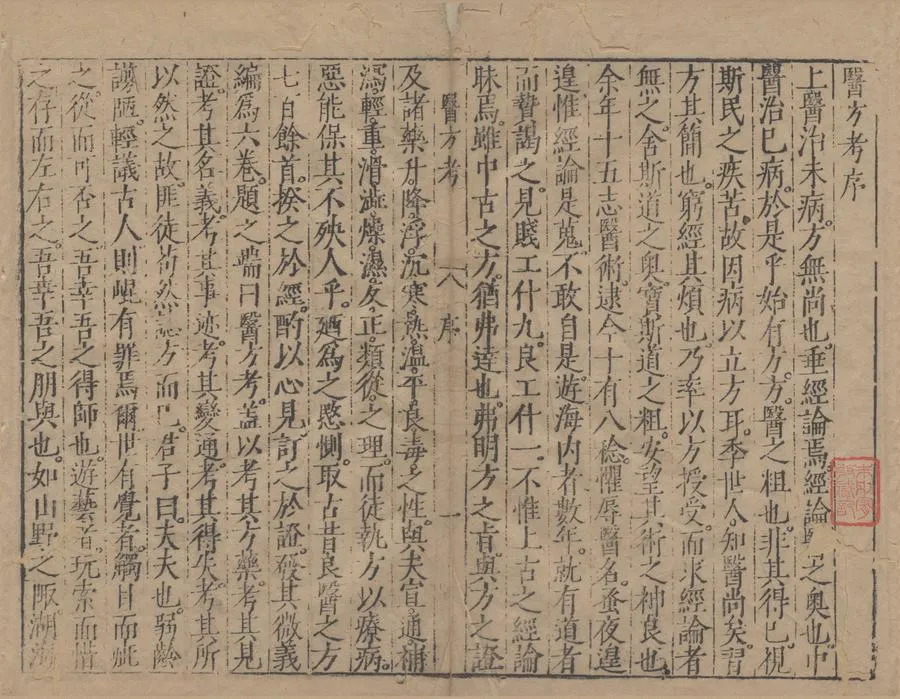 醫方考序
上醫治未病。方無尚也。垂經論焉。經論之奧也。中
醫治已病。於是乎始有方。方。醫之粗也。非其得已。視
斯民之疾苦。故因病以立方耳。季世人。知醫尚矣。習
方其簡也。窮經其煩也。乃率以方授受。而求經論者
無之。舍斯道之奧。寶斯道之粗。安望其術之神良也。
余年十五志醫術。逮今十有八稔。懼辱醫名。蚤夜遑
遑。惟經論是蒐。不敢自是。遊海內者數年。就有道者
而贄謁之。見賤工什九。良工什一。不惟上古之經論
昧焉。雖中古之方。猶弗達也。弗明方之旨與方之證
醫方考 序 一
及諸藥升。降。浮。沉。寒。熱。溫。平。良毒之性。與夫宣。通。補
瀉。輕。重。滑。澁。燥。濕。反。正。類從。之理。而徒執方以療病。
惡能保其不殃人乎。廼為之愍惻。取古昔良醫之方
七百餘首。揆之於經。酌以心見。訂之於證。發其微義
編為六卷。題之端曰醫方考。蓋以考其方藥。考其見
證。考其名義。考其事迹。考其變通。考其得失。考其所
以然之故。匪徒苟然誌方而已。君子曰。夫夫也。弱齡
謭陋。輕議古人。則崐有罪焉爾。世有覺者。觸目而疵
之。從而可否之。吾幸吾之得師也。遊藝者。玩索而惜
之。存而左右之。吾幸吾之朋與也。如山野之陬。湖海